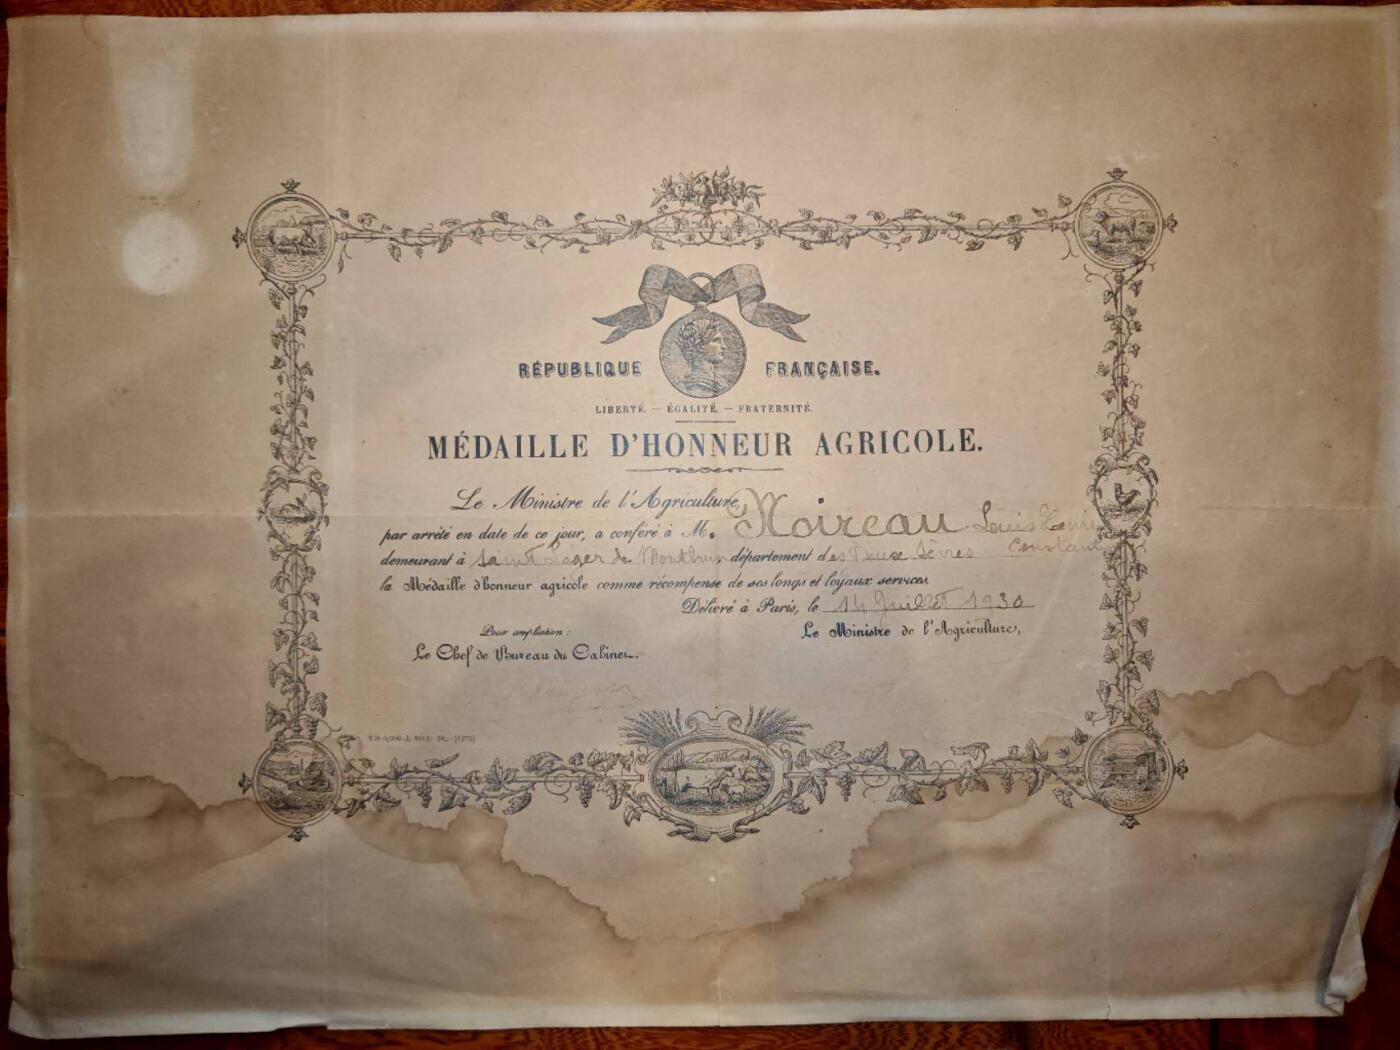 RÉPUBLIQUE FRANÇAISE.
LIBERTÉ. — ÉGALITÉ. — FRATERNITÉ.
MÉDAILLE D'HONNEUR AGRICOLE.
Le Ministre de l'Agriculture,
par arrêté en date de ce jour, a conféré à M. Moireau Louis Henri
Constant
demeurant à Saint Léger de Montbrun département des Deux Sèvres
la Médaille d'honneur agricole comme récompense de ses longs et loyaux services.
Délivré à Paris, le 14 Juillet 1930
Pour ampliation :
Le Ministre de l'Agriculture,
Le Chef de Bureau du Cabinet.